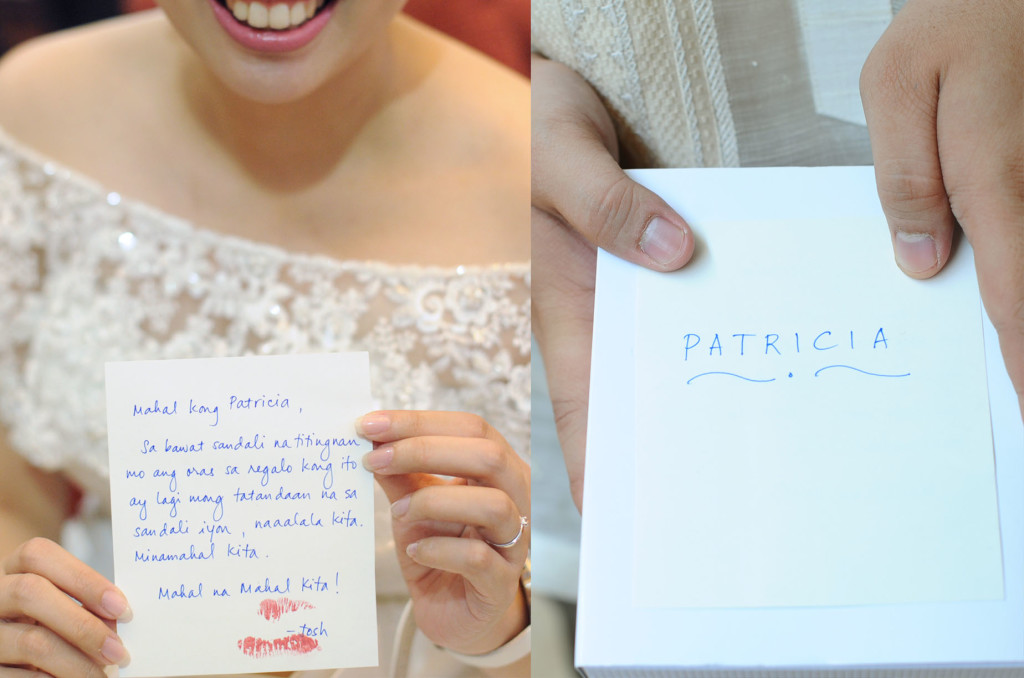 Mahal kong Patricia,
Sa bawat sandali na titingnan
mo ang oras sa regalo kong ito
ay lagi mong tatandaan na sa
sandali iyon, naaalala kita.
Minamahal kita.
Mahal na Mahal kita!
- tosh
PATRICIA